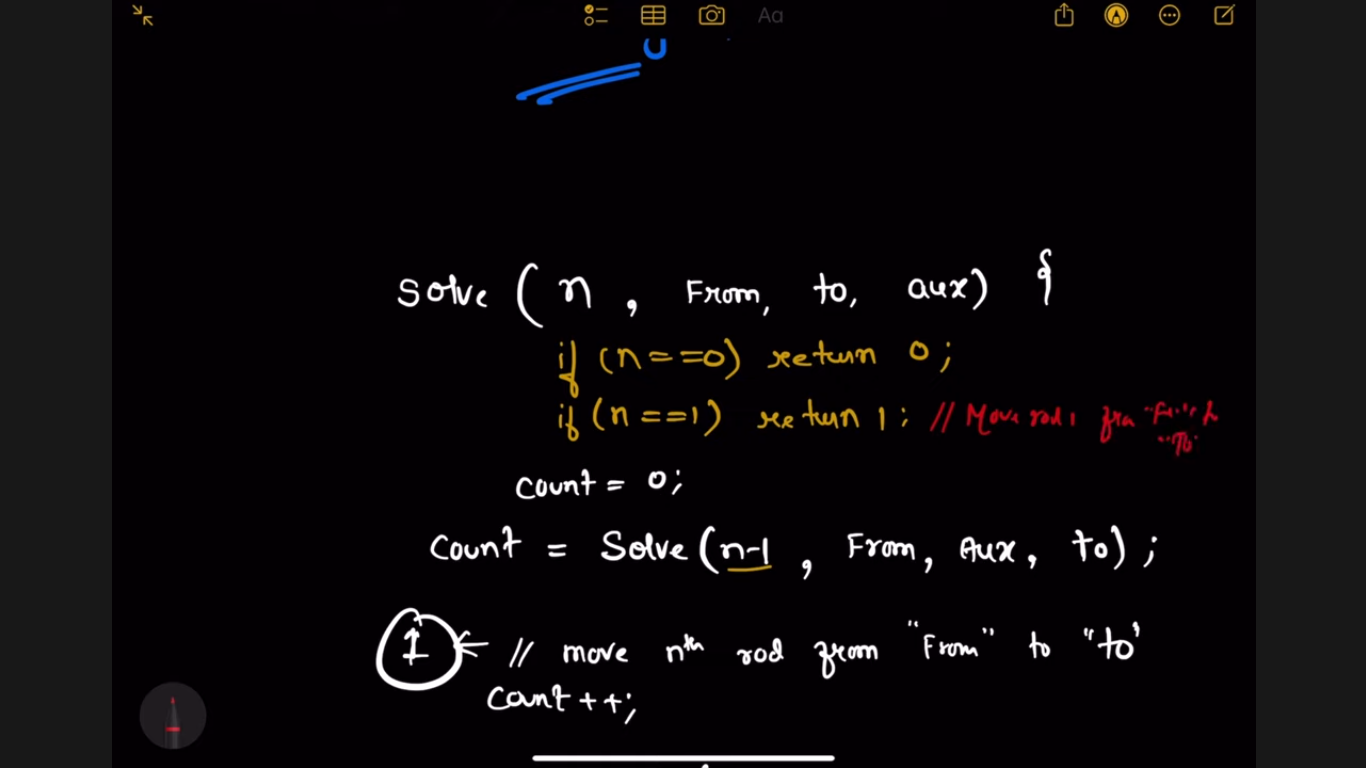 Aa
Solve ( n , From, to, aux) {
if (n==0) return 0;
if (n==1) return 1; // Move rod 1
"To"
count = 0;
count = Solve (n-1 , From, Aux, to) ;
1 ← // move nth rod from "From" to "to"
count ++;